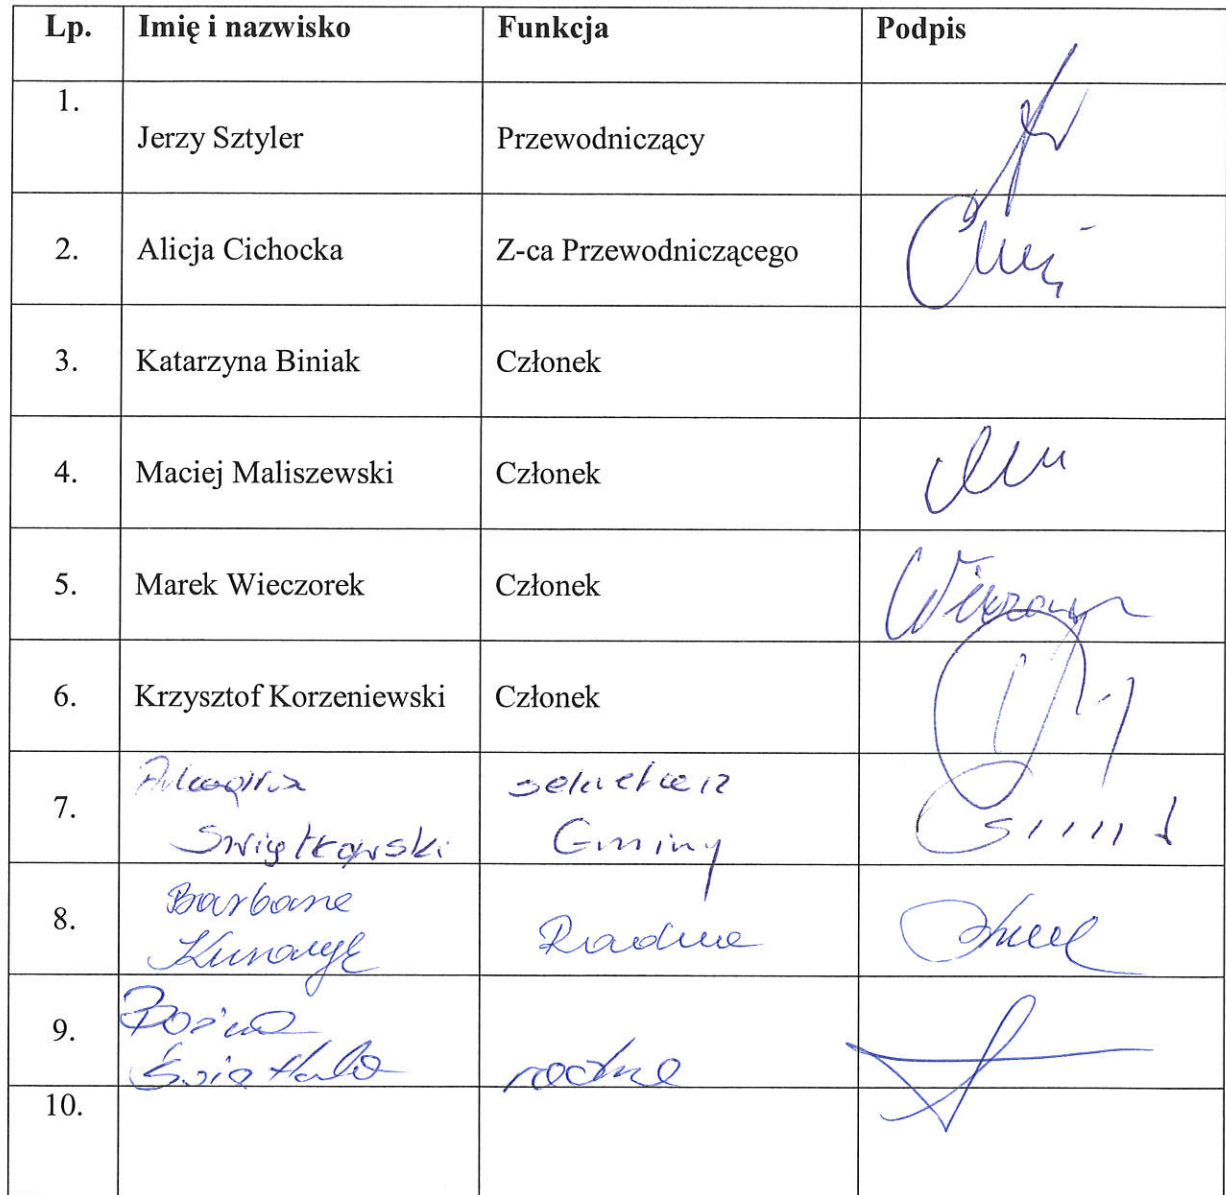 Lp. Imię i nazwisko Funkcja Podpis
1.
Jerzy Sztyler Przewodniczący
2. Alicja Cichocka Z-ca Przewodniczącego
3. Katarzyna Biniak Członek
4. Maciej Maliszewski Członek
5. Marek Wieczorek Członek
6. Krzysztof Korzeniewski Członek
sekretarz
7.
Świątkowski Gminy
Barbara
8.
Radna
9.
radna
10.